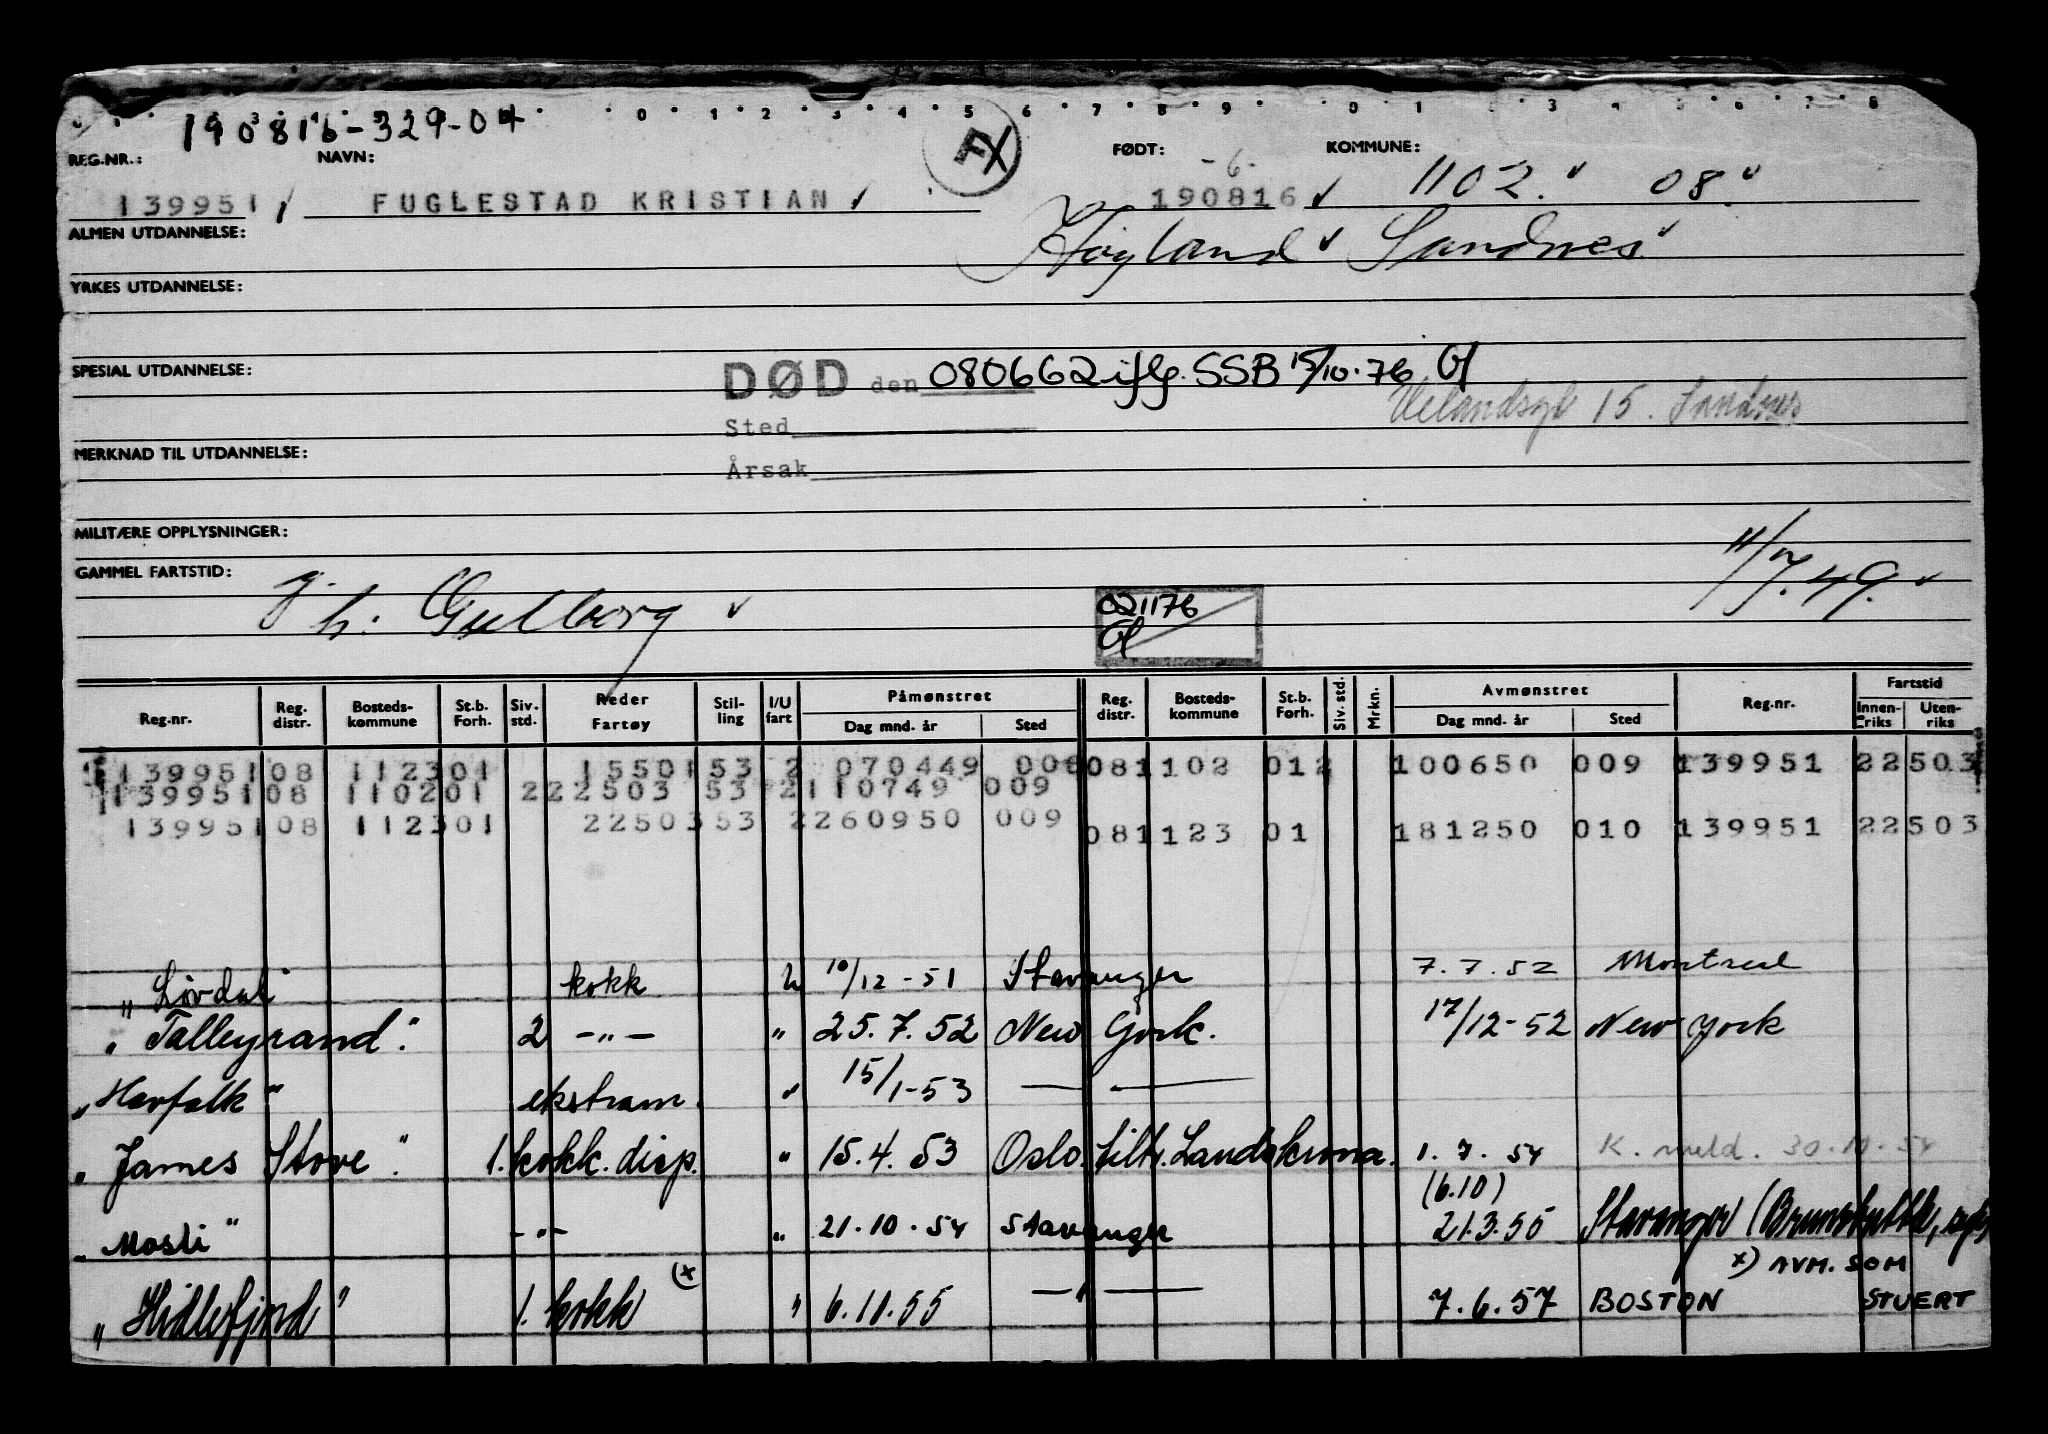 190816-329-04
0 1 2 3 4 5 6 7 8 9 0 1 3 8
REG.NR.: NAVN: FØDT: -6- KOMMUNE:
139951 FUGLESTAD KRISTIAN 190816 1102. 08.
ALMEN UTDANNELSE: Høyland Sandnes
YRKES UTDANNELSE:
SPESIAL UTDANNELSE: DØD den 080662 iflg. SSB 15/10-76
Sted Velandsgt 15. Sandnes
MERKNAD TIL UTDANNELSE:
Årsak
MILITÆRE OPPLYSNINGER:
GAMMEL FARTSTID: h. Gulborg 11/7.49.
021176
Reg.nr. Reg. distr. Bosteds-kommune St.b. Forh. Siv. std. Reder Fartøy Stil-ling I/U fart Påmønstret Dag mnd. år Sted Reg. distr. Bosteds-kommune St.b. Forh. Siv. std. Mrkn. Avmønstret Dag mnd. år Sted Reg.nr. Fartstid Innen-riks Uten-riks
139951 08 1123 01 15501 53 2 070449 008 08 1102 01 2 100650 009 139951 22503
139951 08 1102 01 2 22503 53 2 110749 009
139951 08 1123 01 22503 53 2 260950 009 08 1123 01 181250 010 139951 22503
"Lövdal" kokk U 10/12-51 Stavanger 7.7.52 Montreal
"Talleyrand". 2 -"- " 25.7.52 New York. 17/12-52 New York
"Havfalk" ekstram. " 15/1-53 — —
"James Stove". 1. kokk. disp. " 15.4.53 Oslo. tiltr. Landskrona. 1.7.54 K. meld. 30.10.54
(6.10)
"Mosli" -"- " 21.10.54 Stavanger 21.3.55 Stavanger (Brunsbüttel,
x) AVM. SOM
"Hidlefjord" 1. kokk (x " 6.11.55 —"— 7.6.57 BOSTON STUERT